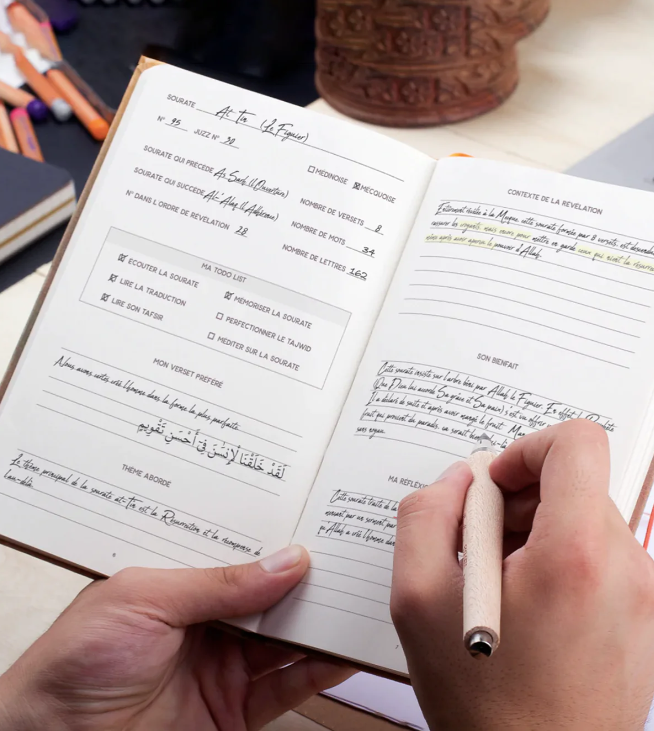 SOURATE At-Tin (Le Figuier)
N° 95 JUZZ N° 30
☐ MEDINOISE ☒ MECQUOISE
SOURATE QUI PRECEDE As-Sarh (L'Ouverture)
SOURATE QUI SUCCEDE Al-'Alaq (L'Adhérence)
N° DANS L'ORDRE DE REVELATION 28
NOMBRE DE VERSETS 8
NOMBRE DE MOTS 34
NOMBRE DE LETTRES 162
MA TODO LIST
☒ ECOUTER LA SOURATE
☒ LIRE LA TRADUCTION
☒ LIRE SON TAFSIR
☒ MEMORISER LA SOURATE
☐ PERFECTIONNER LE TAJWID
☐ MEDITER SUR LA SOURATE
MON VERSET PREFERE
Nous avons certes créé l'Homme dans la forme la plus parfaite.
لَقَدْ خَلَقْنَا لْإِنسَٰنَ فِىٓ أَحْسَنِ تَقْوِيمٍ
THEME ABORDE
Le thème principal de la sourate at-Tin est la Résurrection et la récompense de
l'au-delà.
CONTEXTE DE LA REVELATION
Entièrement révélée à la Mecque, cette sourate formée par 8 versets, est descendu
rassurer les croyants, mais encore pour mettre en garde ceux qui nient la résurre
même après avoir aperçu le pouvoir d'Allah.
SON BIENFAIT
Cette sourate insiste sur l'arbre béni par Allah, le Figuier. En effet, le Prophète
(Que Dieu lui accorde Sa grâce et Sa paix) s'est vu offrir
Il a déclaré de suite et après avoir mangé le fruit
fruit qui provient du paradis, ce serait bien
sans noyau.
MA REFLEXI
Cette sourate traite de la
avançant par un serment par
qu'Allah a créé l'homme dan